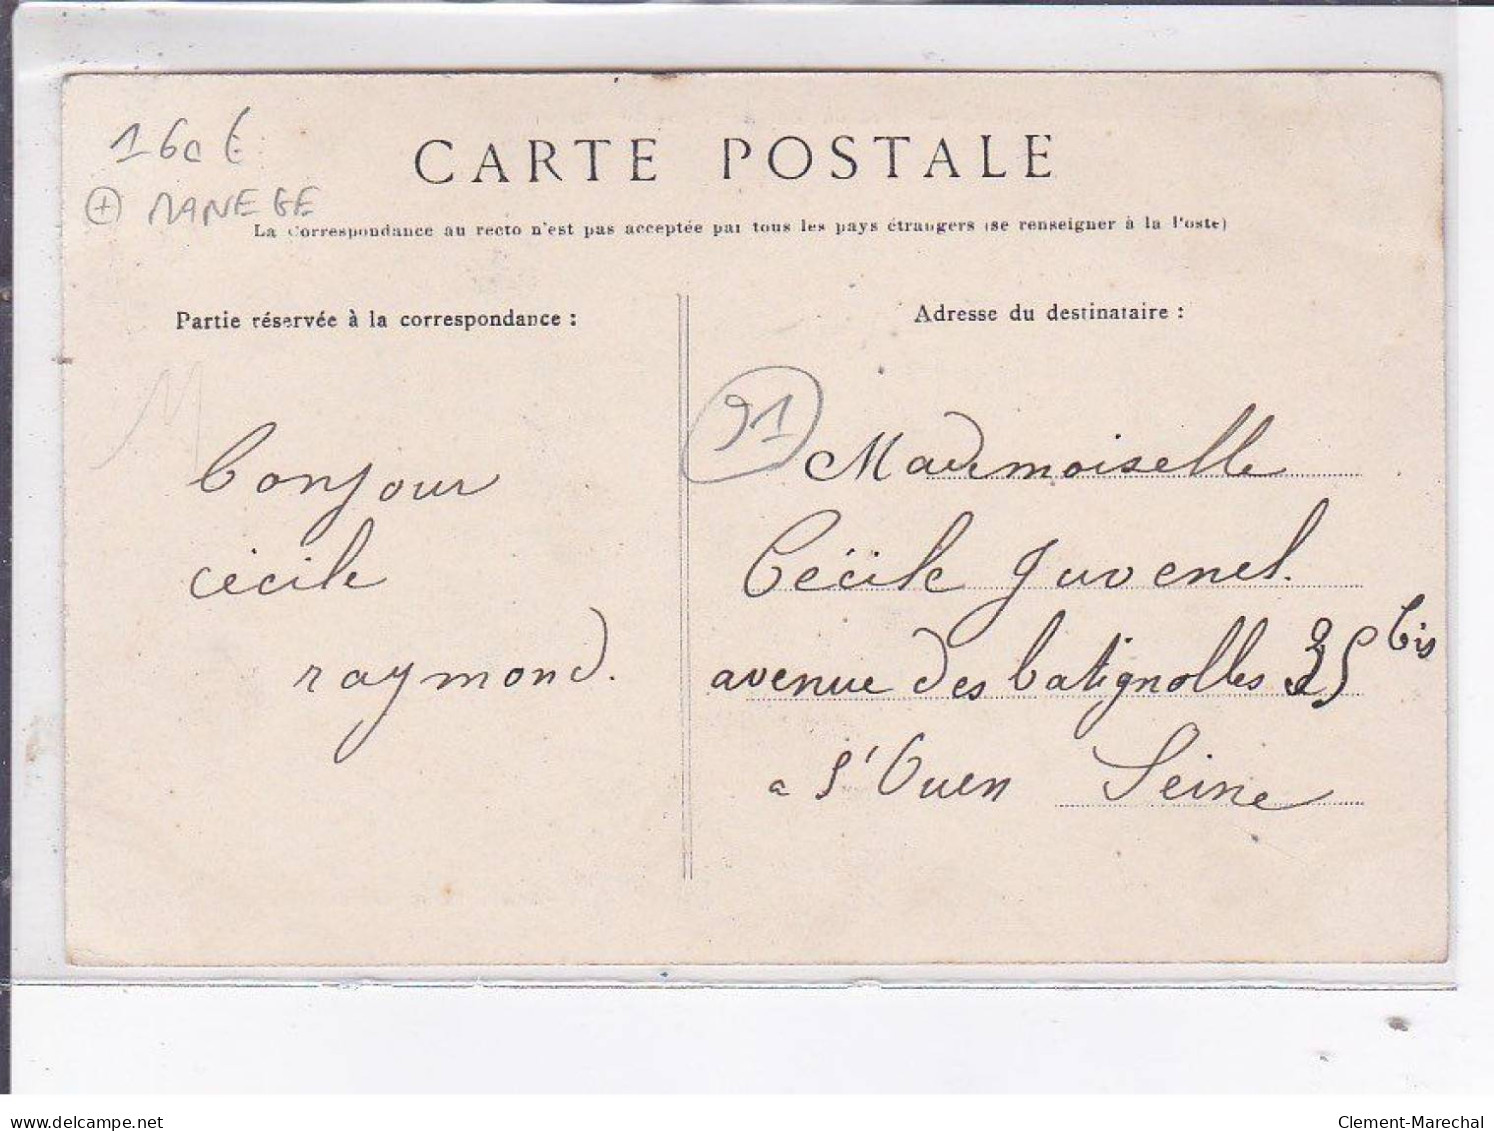 160 €
+ MANEGE
CARTE POSTALE
La Correspondance au recto n'est pas acceptée par tous les pays étrangers (se renseigner à la Poste)
Partie réservée à la correspondance :
M
bonjour
cécile
raymond.
Adresse du destinataire :
91
Mademoiselle
Cécile Juvenel.
avenue des batignolles 35 bis
a St Ouen Seine
delcampe.net
Clement-Marechal